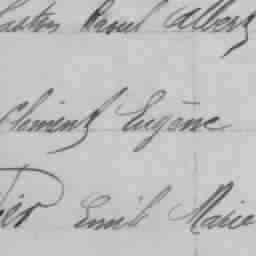 Gaston Raoul Albert
Clément Eugène
Emile Marie